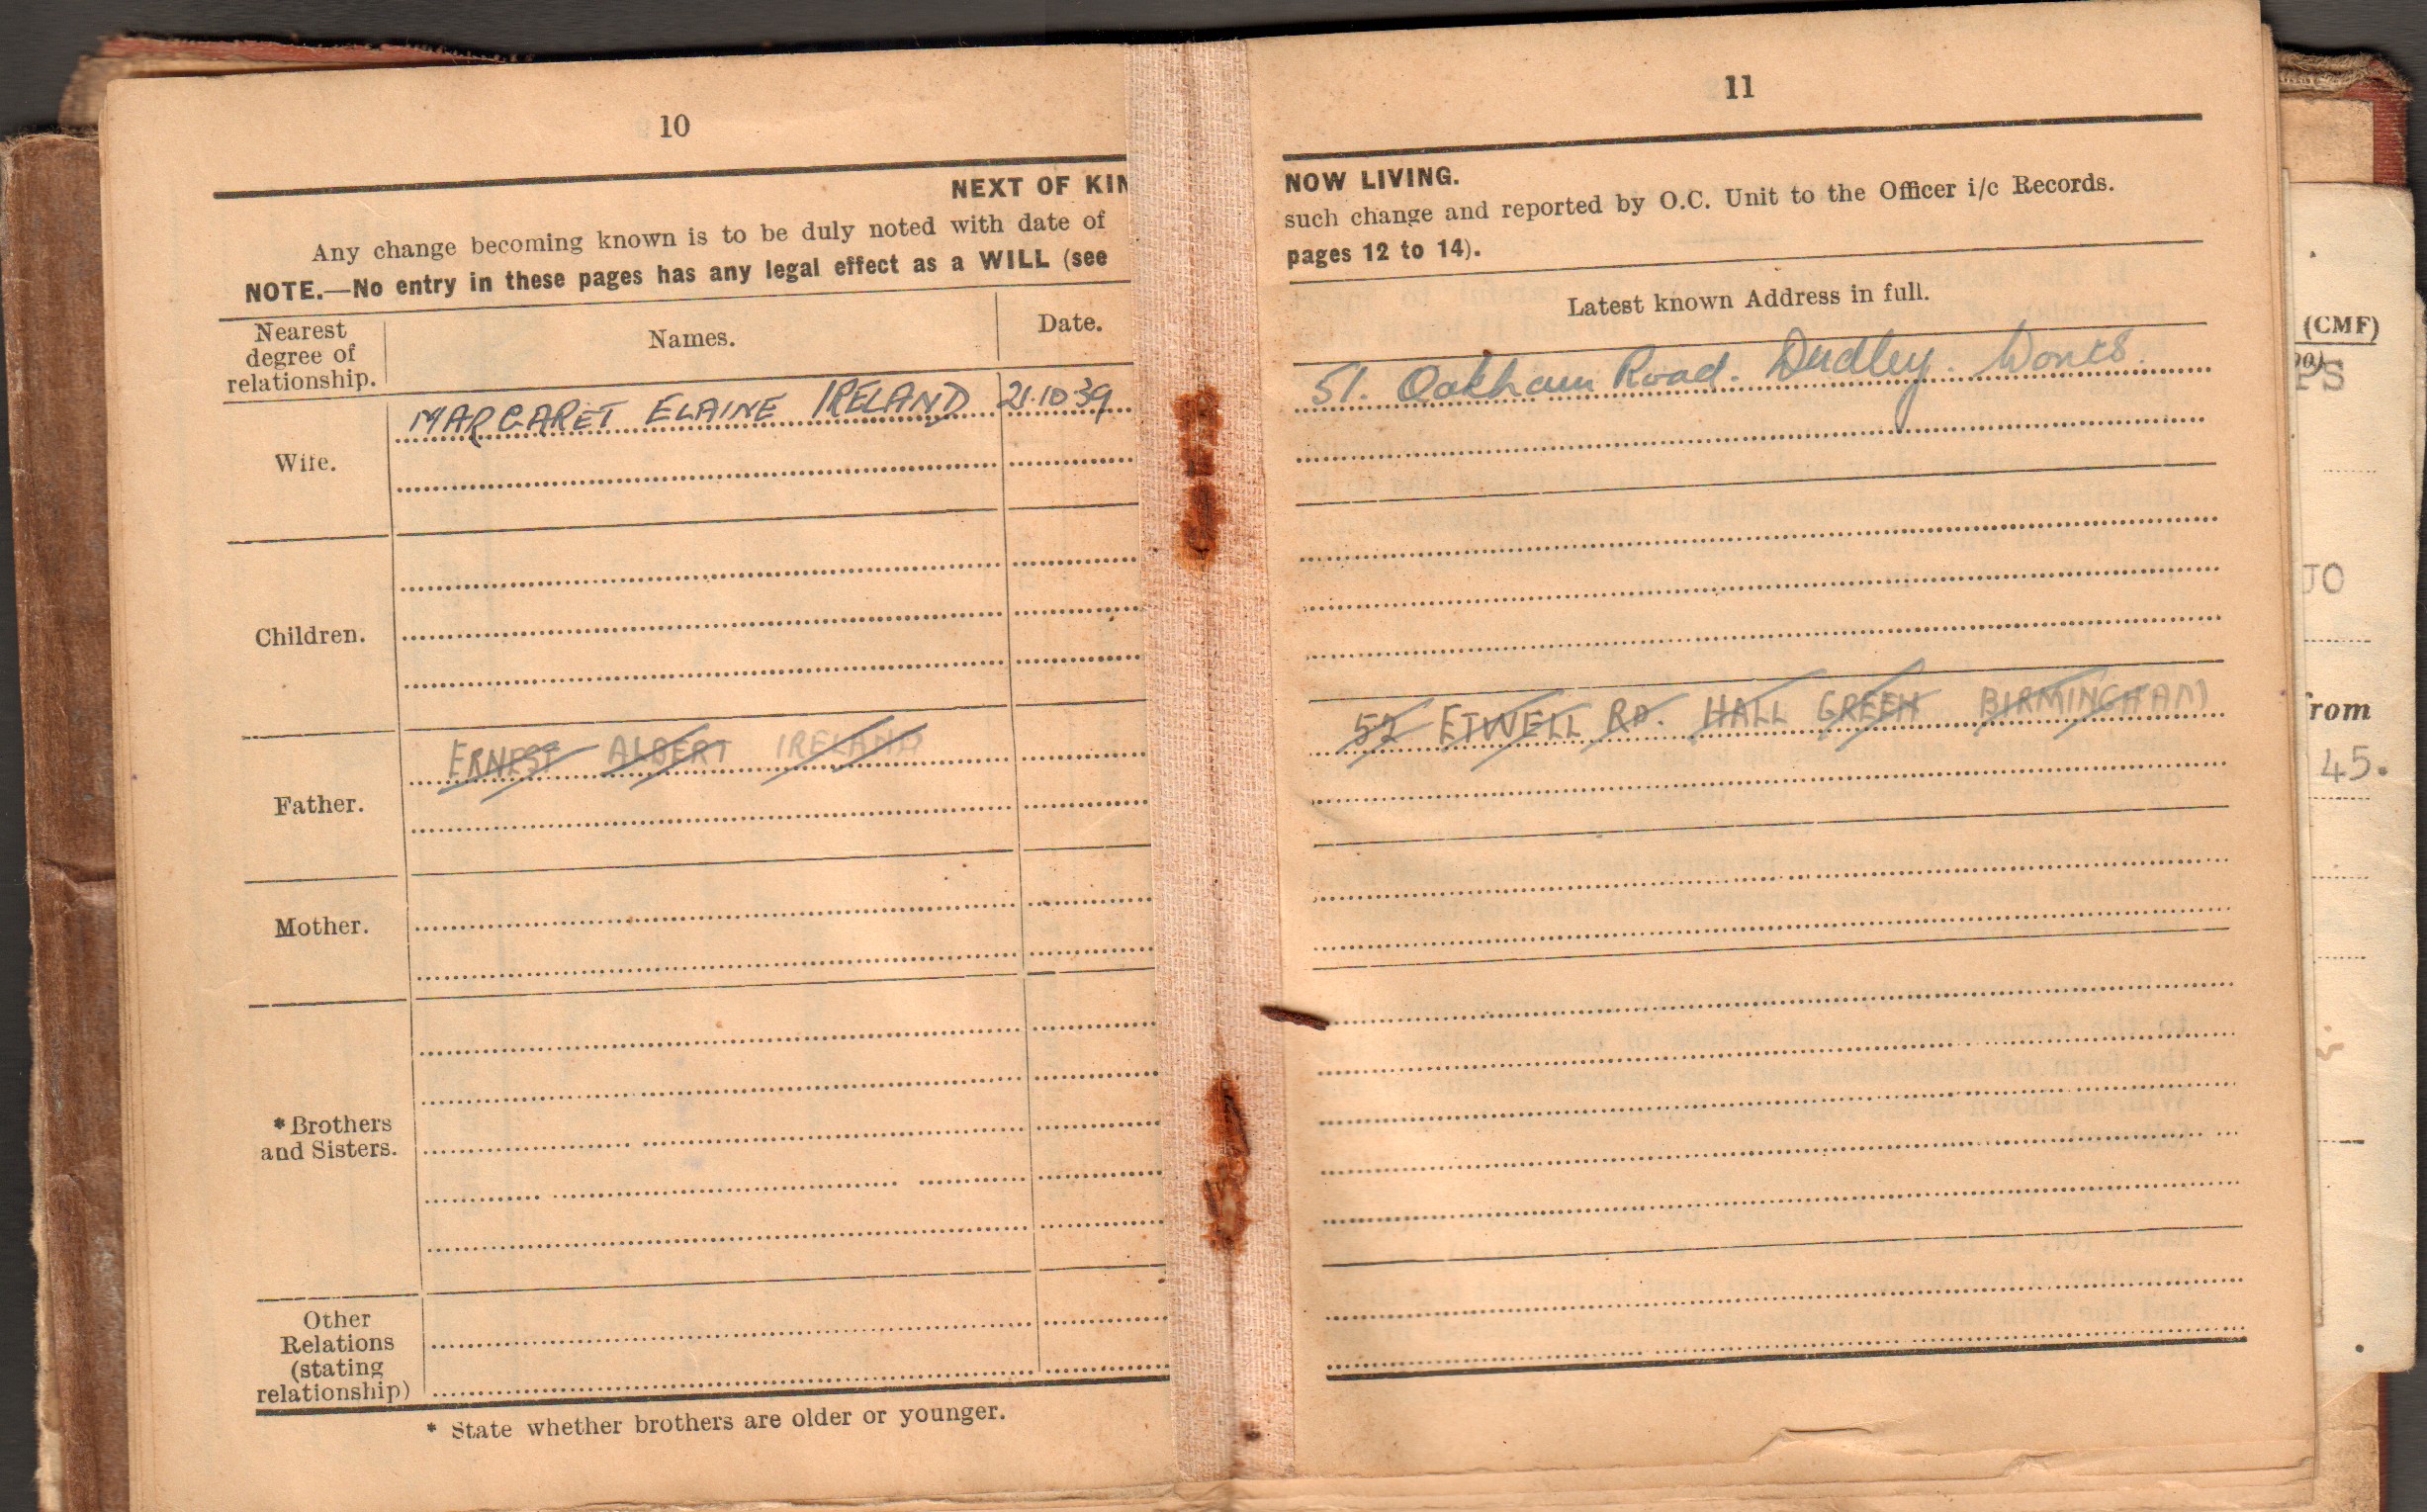 10
NEXT OF KIN
Any change becoming known is to be duly noted with date of
NOTE.—No entry in these pages has any legal effect as a WILL (see
Nearest degree of relationship.
Names.
Date.
Wife.
MARGARET ELAINE IRELAND 21.10.39
Children.
Father.
ERNEST ALBERT IRELAND
Mother.
*Brothers
and Sisters.
Other
Relations
(stating
relationship)
* State whether brothers are older or younger.
11
NOW LIVING.
such change and reported by O.C. Unit to the Officer i/c Records.
pages 12 to 14).
Latest known Address in full.
51. Oakham Road. Dudley. Worcs.
52 ETWELL RD. HALL GREEN BIRMINGHAM
(CMF)
PS
JO
from
45.